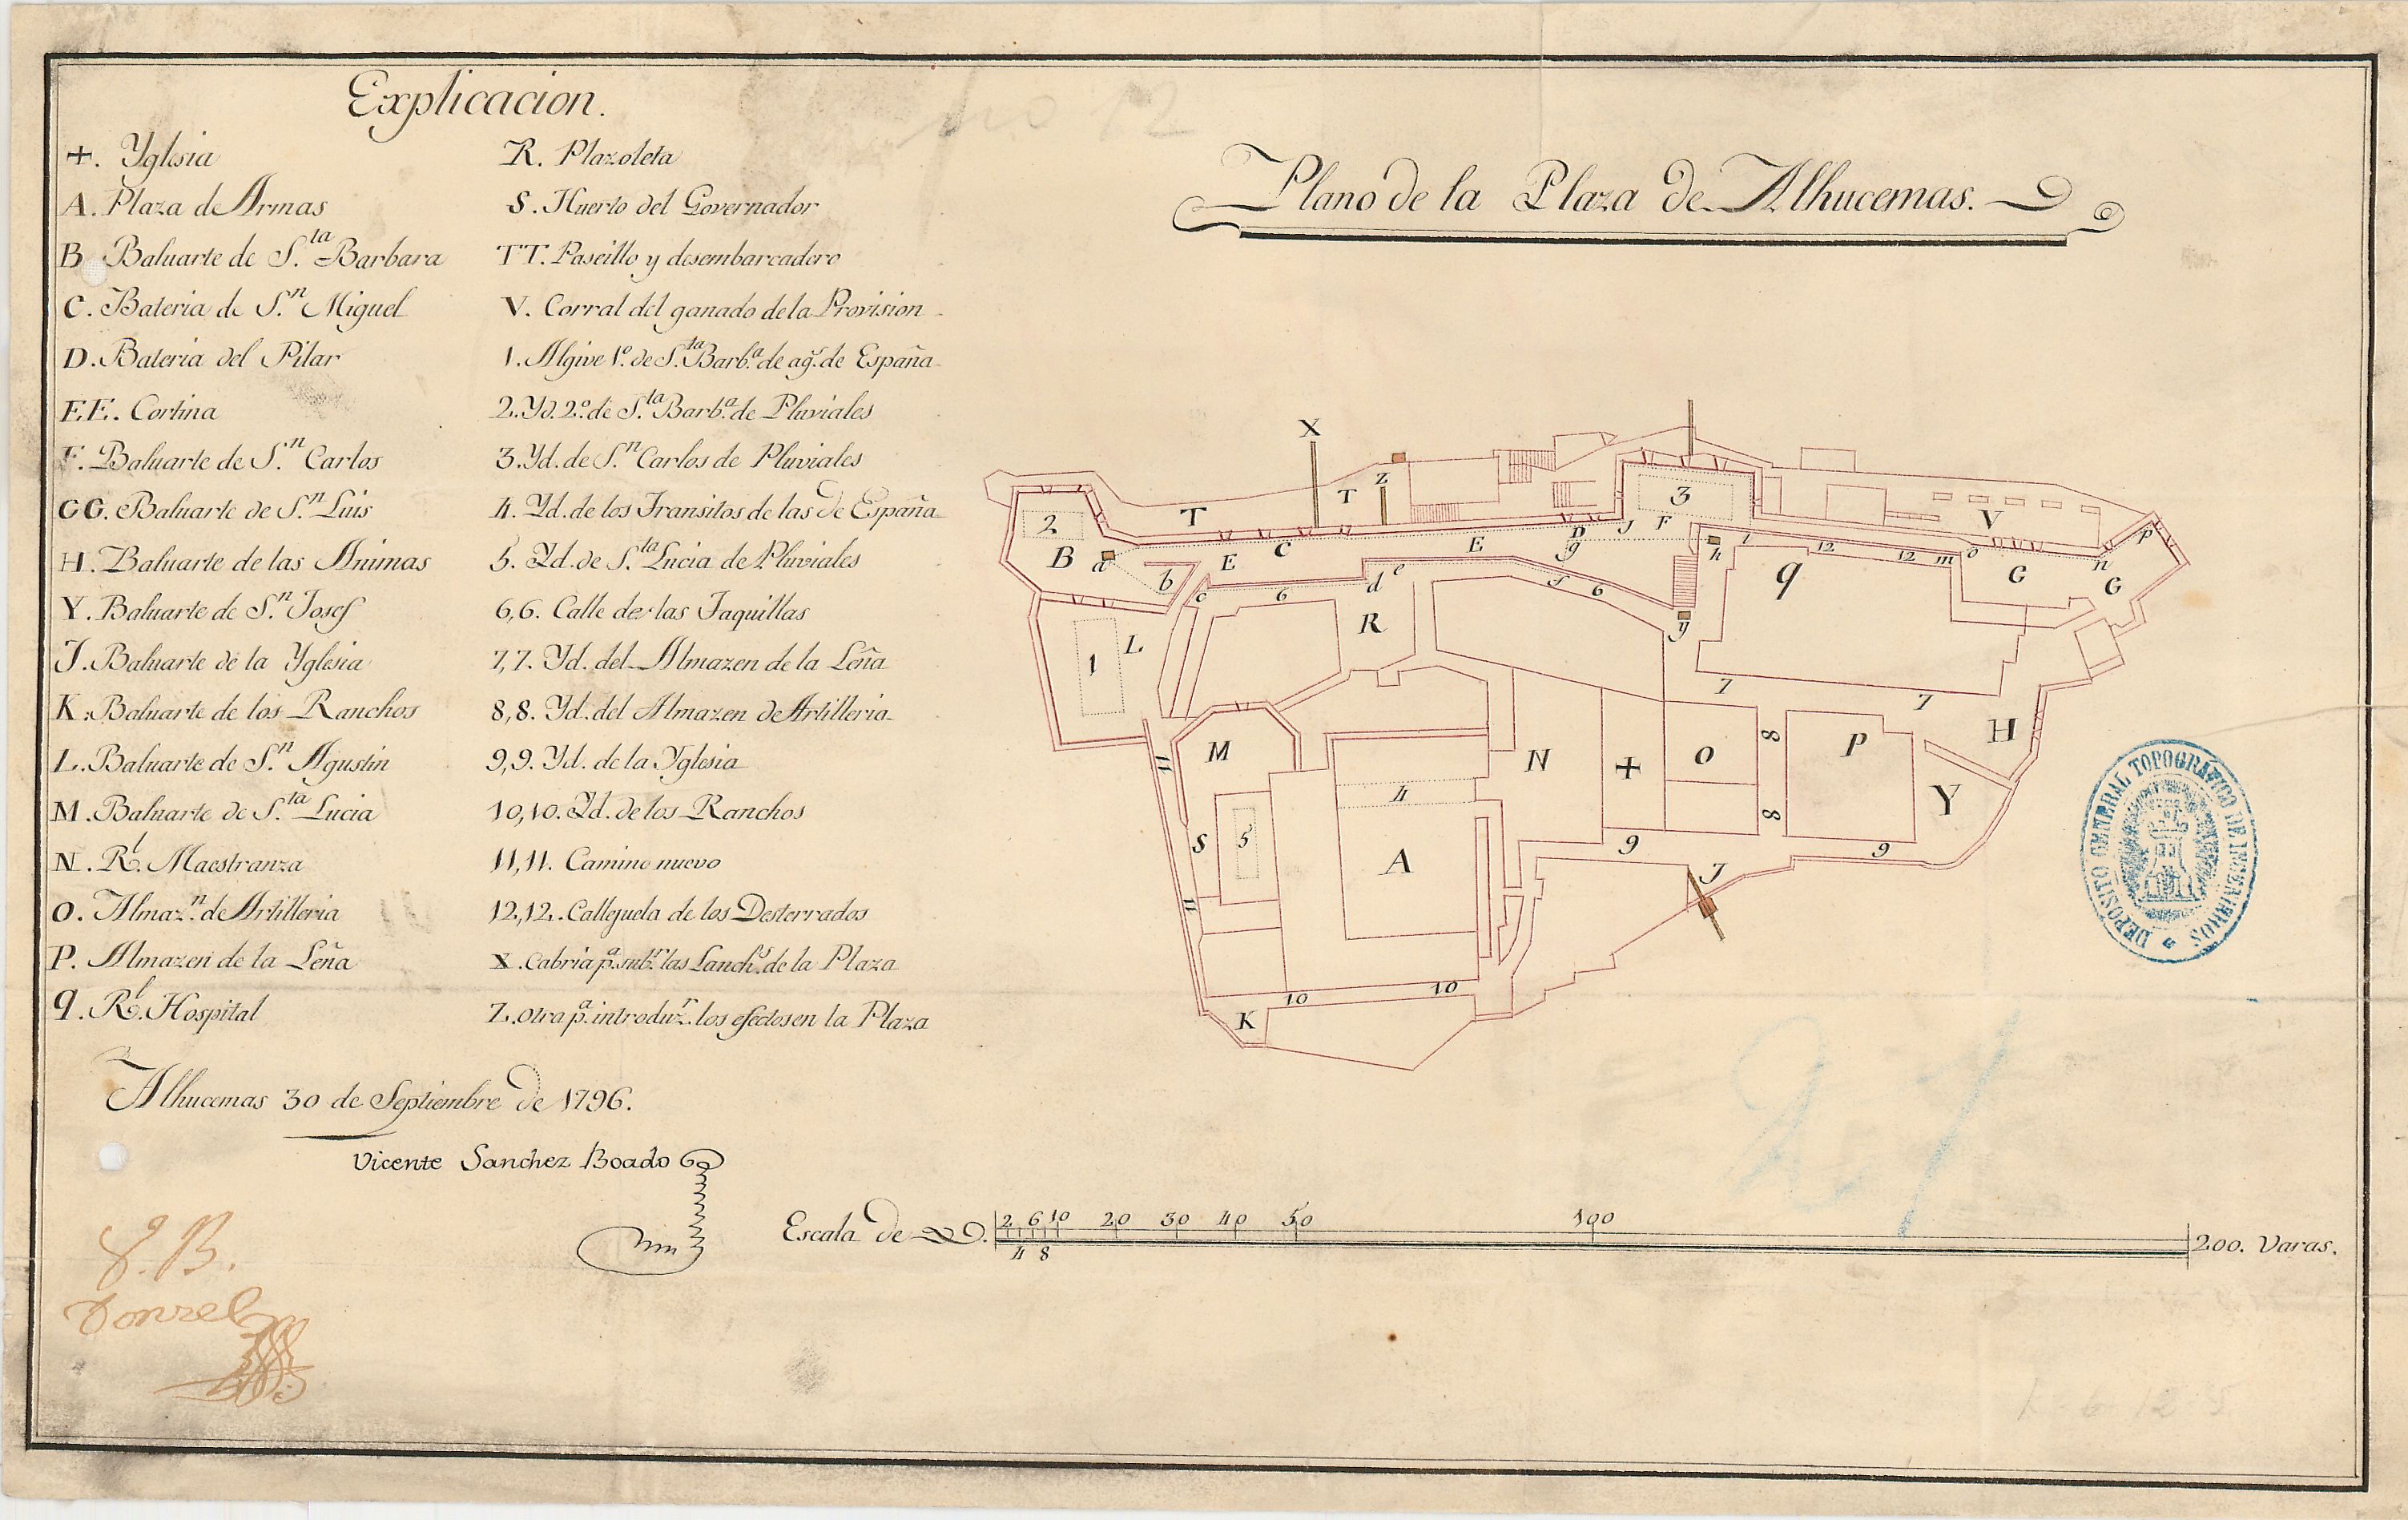 Explicacion.
+. Yglesia
A. Plaza de Armas
B Baluarte de S.ta Barbara
C. Bateria de S.n Miguel
D. Bateria del Pilar
EE. Cortina
F. Baluarte de S.n Carlos
GG. Baluarte de S.n Luis
H. Baluarte de las Animas
Y. Baluarte de S.n Josef
J. Baluarte de la Yglesia
K. Baluarte de los Ranchos
L. Baluarte de S.n Agustin
M. Baluarte de S.ta Lucia
N. Rl. Maestranza
O. Almaz.n de Artilleria
P. Almazen de la Leña
q. Rl. Hospital
R. Plazoleta
S. Huerto del Governador
TT. Paseillo y desembarcadero
V. Corral del ganado de la Provision
1. Algive 1º. de S.ta Barb.a de ag.s de España
2. Yd. 2º. de S.ta Barb.a de Pluviales
3. Yd. de S.n Carlos de Pluviales
4. Yd. de los Transitos de las de España
5. Yd. de S.ta Lucia de Pluviales
6,6. Calle de las Taquillas
7,7. Yd. del Almazen de la Leña
8,8. Yd. del Almazen de Artilleria
9,9. Yd. de la Yglesia
10,10. Yd. de los Ranchos
11,11. Camino nuevo
12,12. Callejuela de los Desterrados
X. Cabria p.a sub.r las Lanch.s de la Plaza
Z. otra p.a introduz.r los efectos en la Plaza
Alhucemas 30 de Septiembre de 1796.
Vicente Sanchez Boado
Plano de la Plaza de Alhucemas.
X
Z
T
T
3
2
B
a
b
E
C
E
D
g
J
F
h
l
12
12
m
o
V
n
p
G
G
q
c
6
d
e
f
6
y
R
L
1
7
7
H
M
N
+
O
8
8
P
Y
11
4
S
5
A
9
9
J
11
10
10
K
DEPOSITO GENERAL TOPOGRÁFICO DE INGENIEROS
Escala de
2 6 10 20 30 40 50 100
4 8
200. Varas.